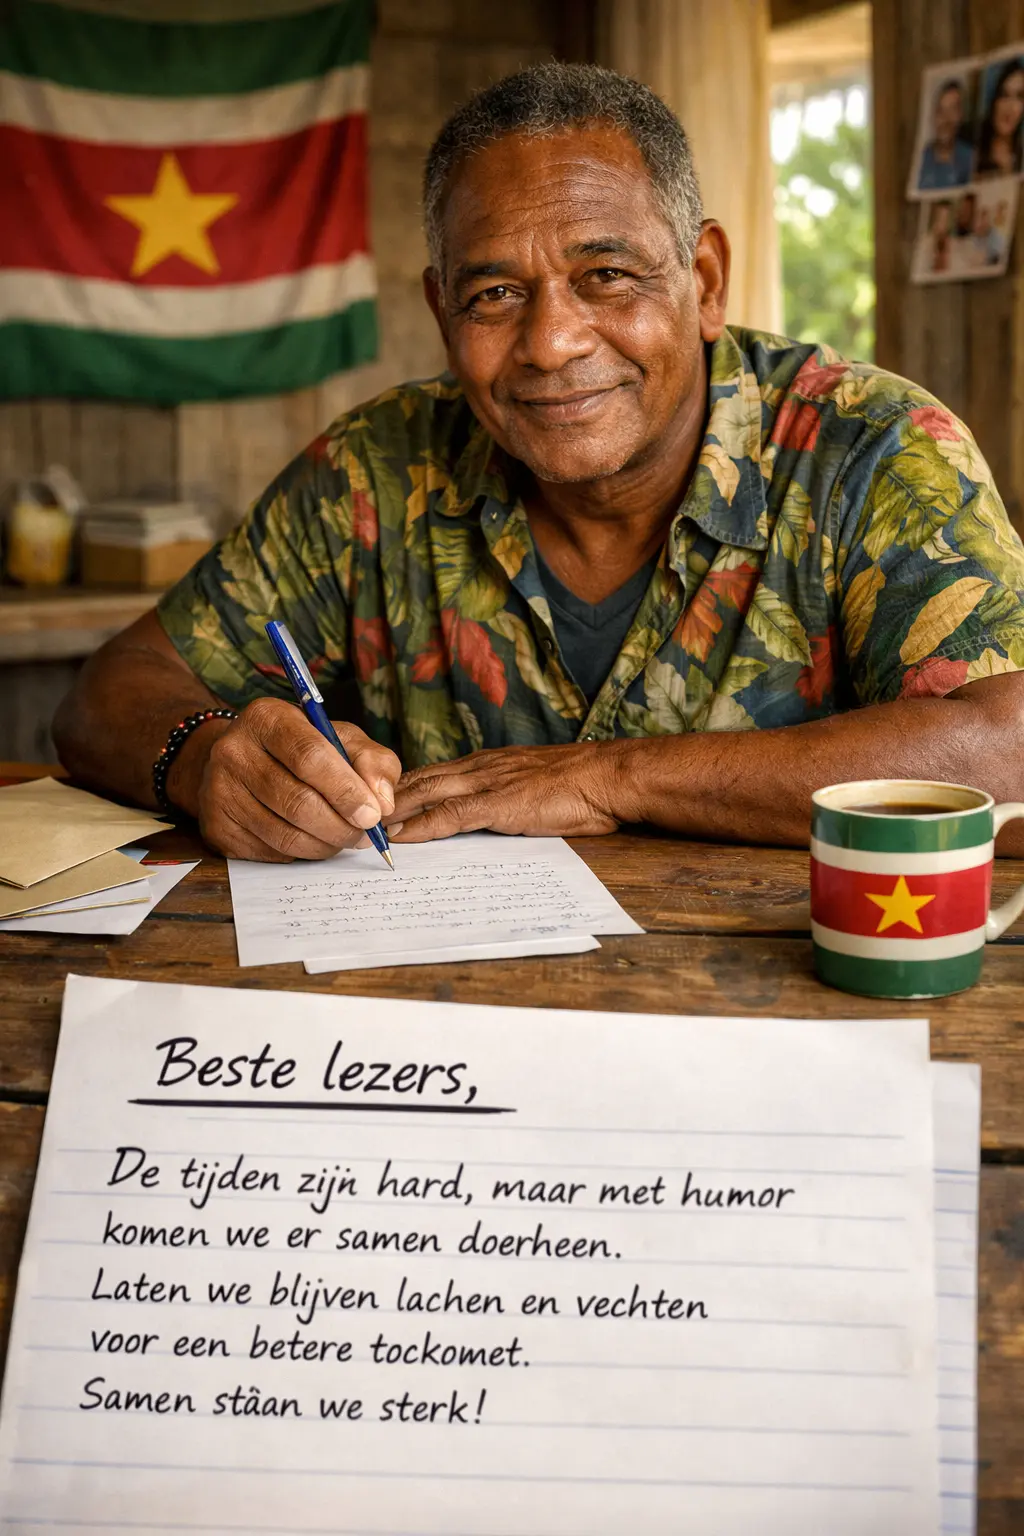 Beste lezers,
De tijden zijn hard, maar met humor
komen we er samen doerheen.
Laten we blijven lachen en vechten
voor een betere tockomet.
Samen stäan we sterk!